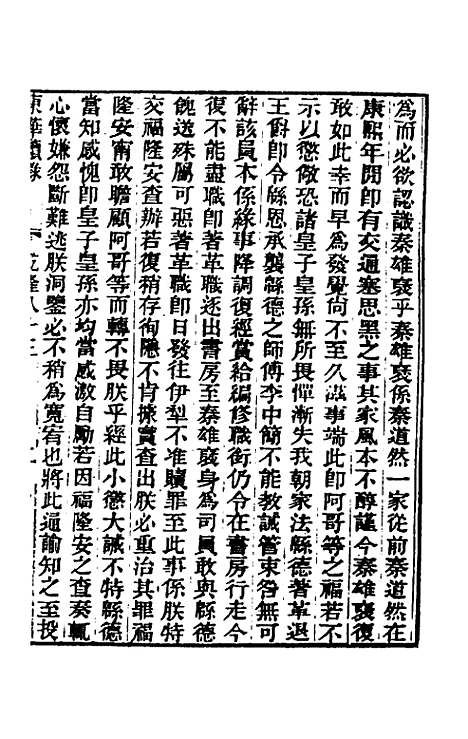 為而必欲認識秦雄褎乎秦雄褎係秦道然一家從前秦道然在
康熙年閒即有交通塞思黑之事其家風本不醇謹今秦雄褎復
敢如此幸而早為發覺尚不至久滋事端此即阿哥等之福若不
示以懲儆恐諸皇子皇孫無所畏憚漸失我朝家法緜德著革退
王爵即令緜恩承襲緜德之師傅李中簡不能教誡管束咎無可
辭該員本係緣事降調復經賞給編修職銜仍令在書房行走今
復不能盡職即著革職逐出書房至秦雄褎身為司員敢與緜德
餽送殊屬可惡著革職即日發往伊犁不准贖罪至此事係朕特
交福隆安查辦若復稍存徇隱不肯據實查出朕必重治其罪福
隆安甯敢瞻顧阿哥等而轉不畏朕乎經此小懲大誡不特緜德
當知感愧即皇子皇孫亦均當感激自勵若因福隆安之查奏輒
心懷嫌怨斷難逃朕洞鑒必不稍為寬宥也將此通諭知之至投
東華續錄 乾隆八十三